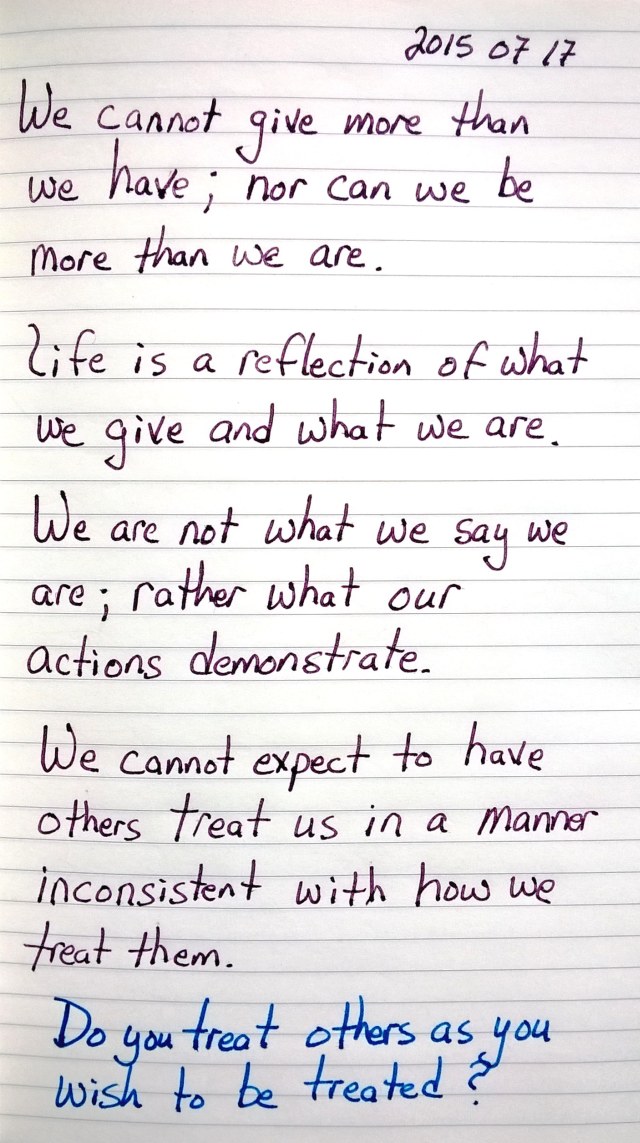 2015 07 17
We cannot give more than
we have; nor can we be
more than we are.
Life is a reflection of what
we give and what we are.
We are not what we say we
are; rather what our
actions demonstrate.
We cannot expect to have
others treat us in a manner
inconsistent with how we
treat them.
Do you treat others as you
wish to be treated?